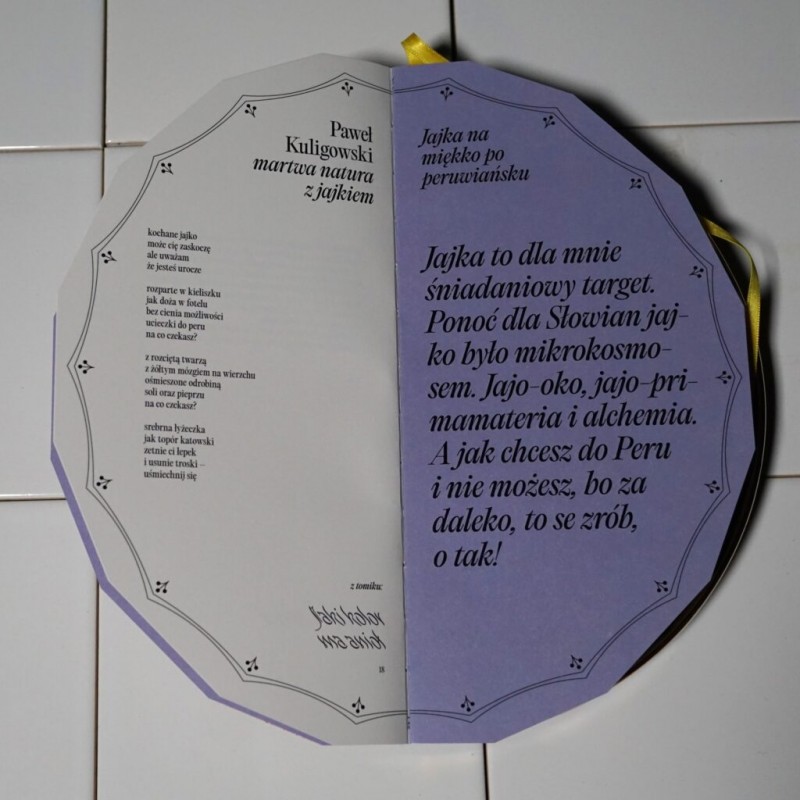 Paweł
Kuligowski
martwa natura
z jajkiem
kochane jajko
może cię zaskoczę
ale uważam
że jesteś urocze
rozparte w kieliszku
jak doża w fotelu
bez cienia możliwości
ucieczki do peru
na co czekasz?
z rozciętą twarzą
z żółtym mózgiem na wierzchu
ośmieszone odrobiną
soli oraz pieprzu
na co czekasz?
srebrna łyżeczka
jak topór katowski
zetnie ci łepek
i usunie troski –
uśmiechnij się
z tomiku:
18
Jajka na
miękko po
peruwiańsku
Jajka to dla mnie
śniadaniowy target.
Ponoć dla Słowian jaj-
ko było mikrokosmo-
sem. Jajo-oko, jajo-pri-
mamateria i alchemia.
A jak chcesz do Peru
i nie możesz, bo za
daleko, to se zrób,
o tak!